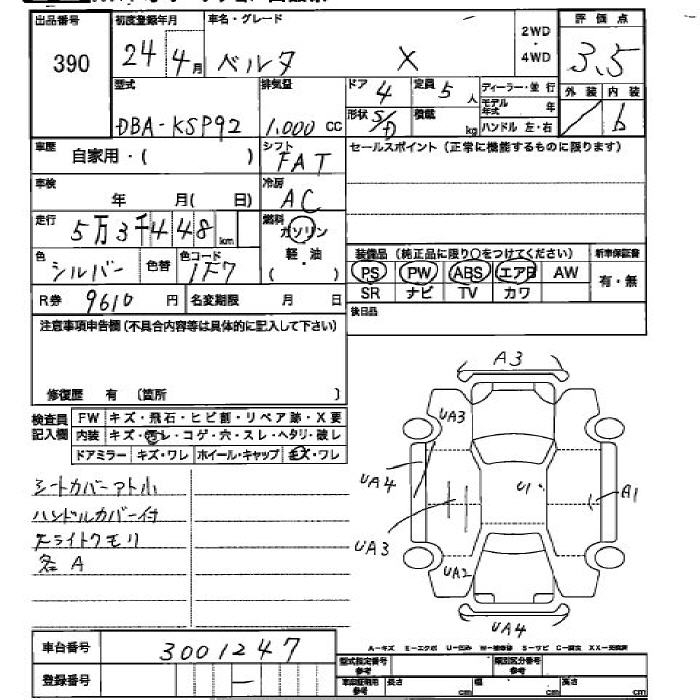 出品番号 初度登録年月 車名・グレード 2WD・4WD 評価点
390 24年 4月 ベルタ X 3.5
型式 排気量 ドア 4 定員 5人 ディーラー・並行 外装 内装
DBA-KSP92 1.000 CC 形状 S/D 積載 kg モデル年式 年 ハンドル 左・右 / b
車歴 自家用・( ) シフト FAT セールスポイント (正常に機能するものに限ります)
車検 年 月( 日) 冷房 AC
走行 5万3千448km 燃料 ガソリン・軽油 ( )
装備品 (純正品に限り○をつけてください) 新車保証書
色 シルバー 色替 色コード 1F7 PS PW ABS エアB AW 有・無
R券 9610円 名変期限 月 日 SR ナビ TV カワ
注意事項申告欄 (不具合内容等は具体的に記入して下さい) 後日品
修復歴 有 〔箇所 〕
検査員記入欄 FW キズ・飛石・ヒビ割・リペア跡・X要
内装 キズ・汚レ・コゲ・穴・スレ・ヘタリ・破レ
ドアミラー キズ・ワレ ホイール・キャップ キズ・ワレ
シートカバーアト小
ハンドルカバー付
ライトクモリ
各A
A3
UA3
UA4
U1
A1
UA3
UA2
UA4
車台番号 3001247
登録番号 ー
A-キズ E-エクボ U-凹み
型式指定番号 参考 類別区分番号 参考
長さ cm 幅 cm 高さ cm